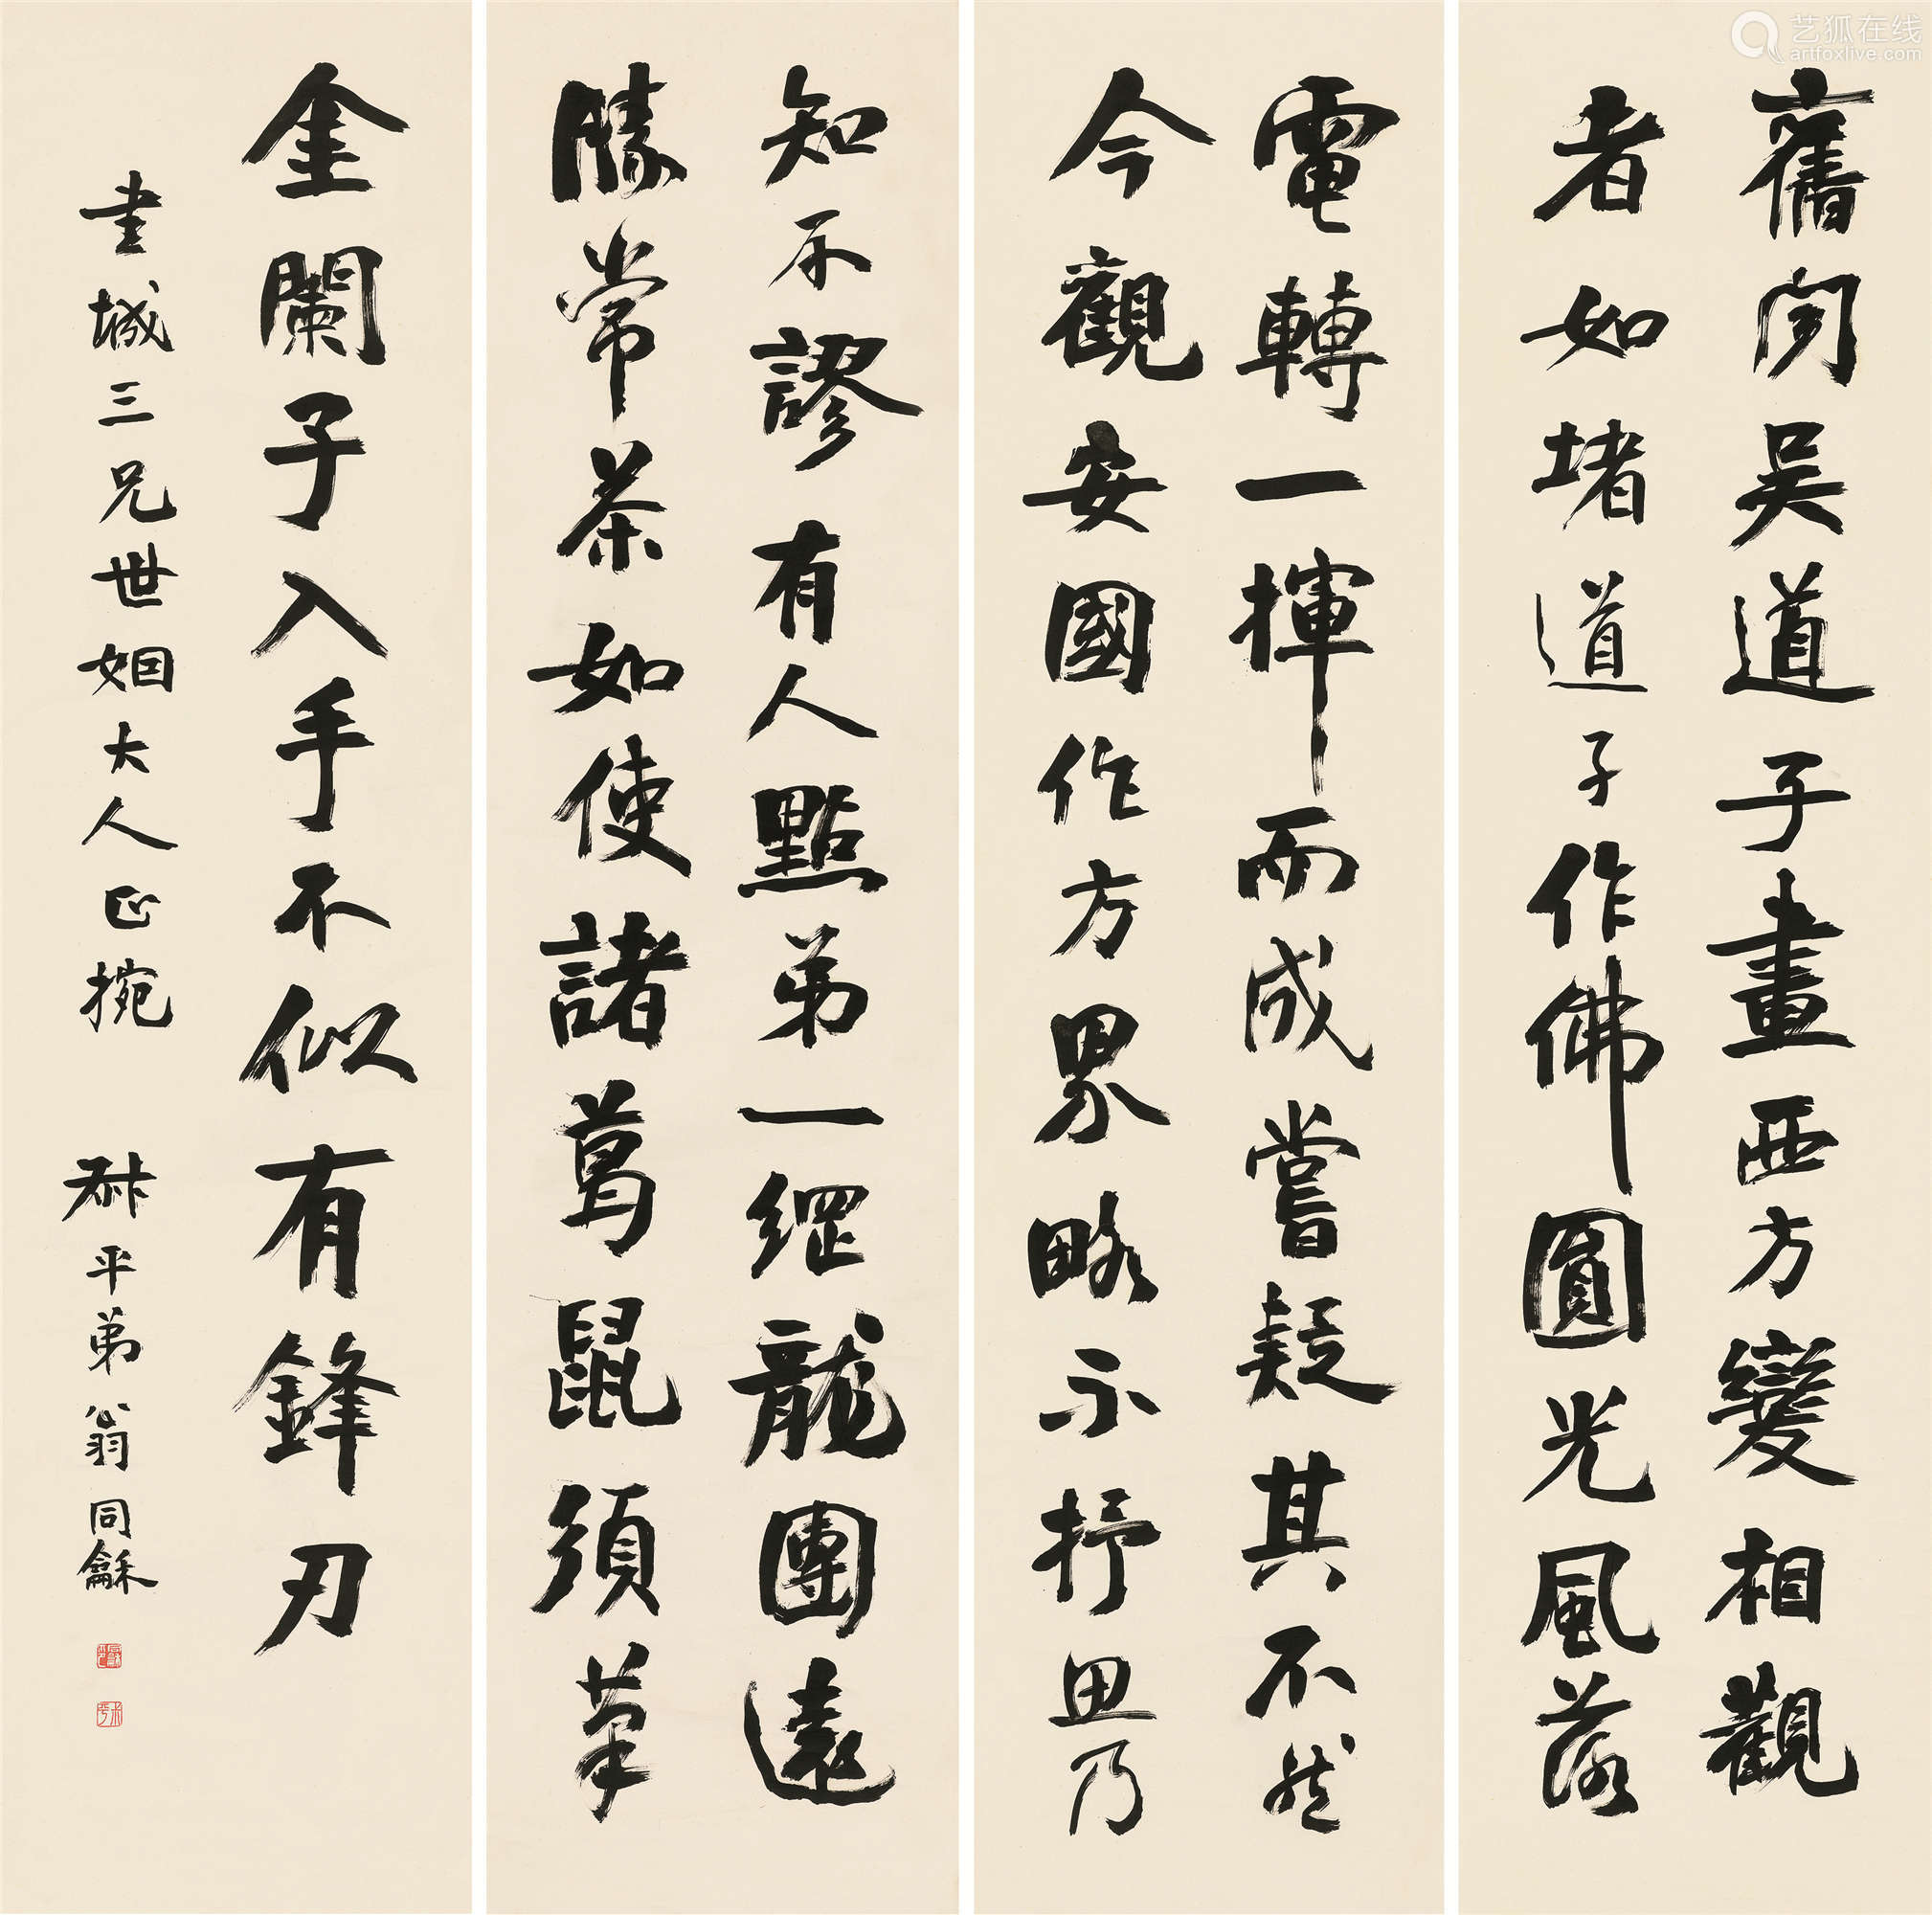 艺狐在线
artfoxlive.com
舊聞吳道子畫西方變相觀
者如堵道子作佛圓光風落
電轉一揮而成嘗疑其不然
今觀安國作方界略不抒思乃
知不謬有人點弟一綱龍團遠
勝常茶如使諸葛鼠須筆
金闌子入手不似有鋒刃
書城三兄世姻大人正捥 叔平弟翁同龢